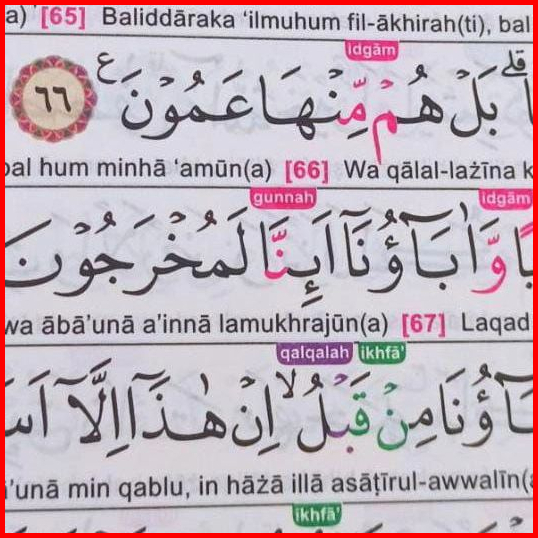 a) [65] Baliddāraka 'ilmuhum fil-ākhirah(ti), bal
idgām
بَلْ هُمْ مِّنْهَا عَمُوْنَ ع ٦٦
bal hum minhā 'amūn(a) [66] Wa qālal-lażīna k
gunnah idgām
وَّاٰبَاۤؤُنَآ اَىِٕنَّا لَمُخْرَجُوْنَ
wa ābā'unā a'innā lamukhrajūn(a) [67] Laqad
qalqalah ikhfā'
بَاۤؤُنَا مِنْ قَبْلُۙ اِنْ هٰذَآ اِلَّآ اَسَا
ā'unā min qablu, in hāżā illā asāṭīrul-awwalīn(a
ikhfā'